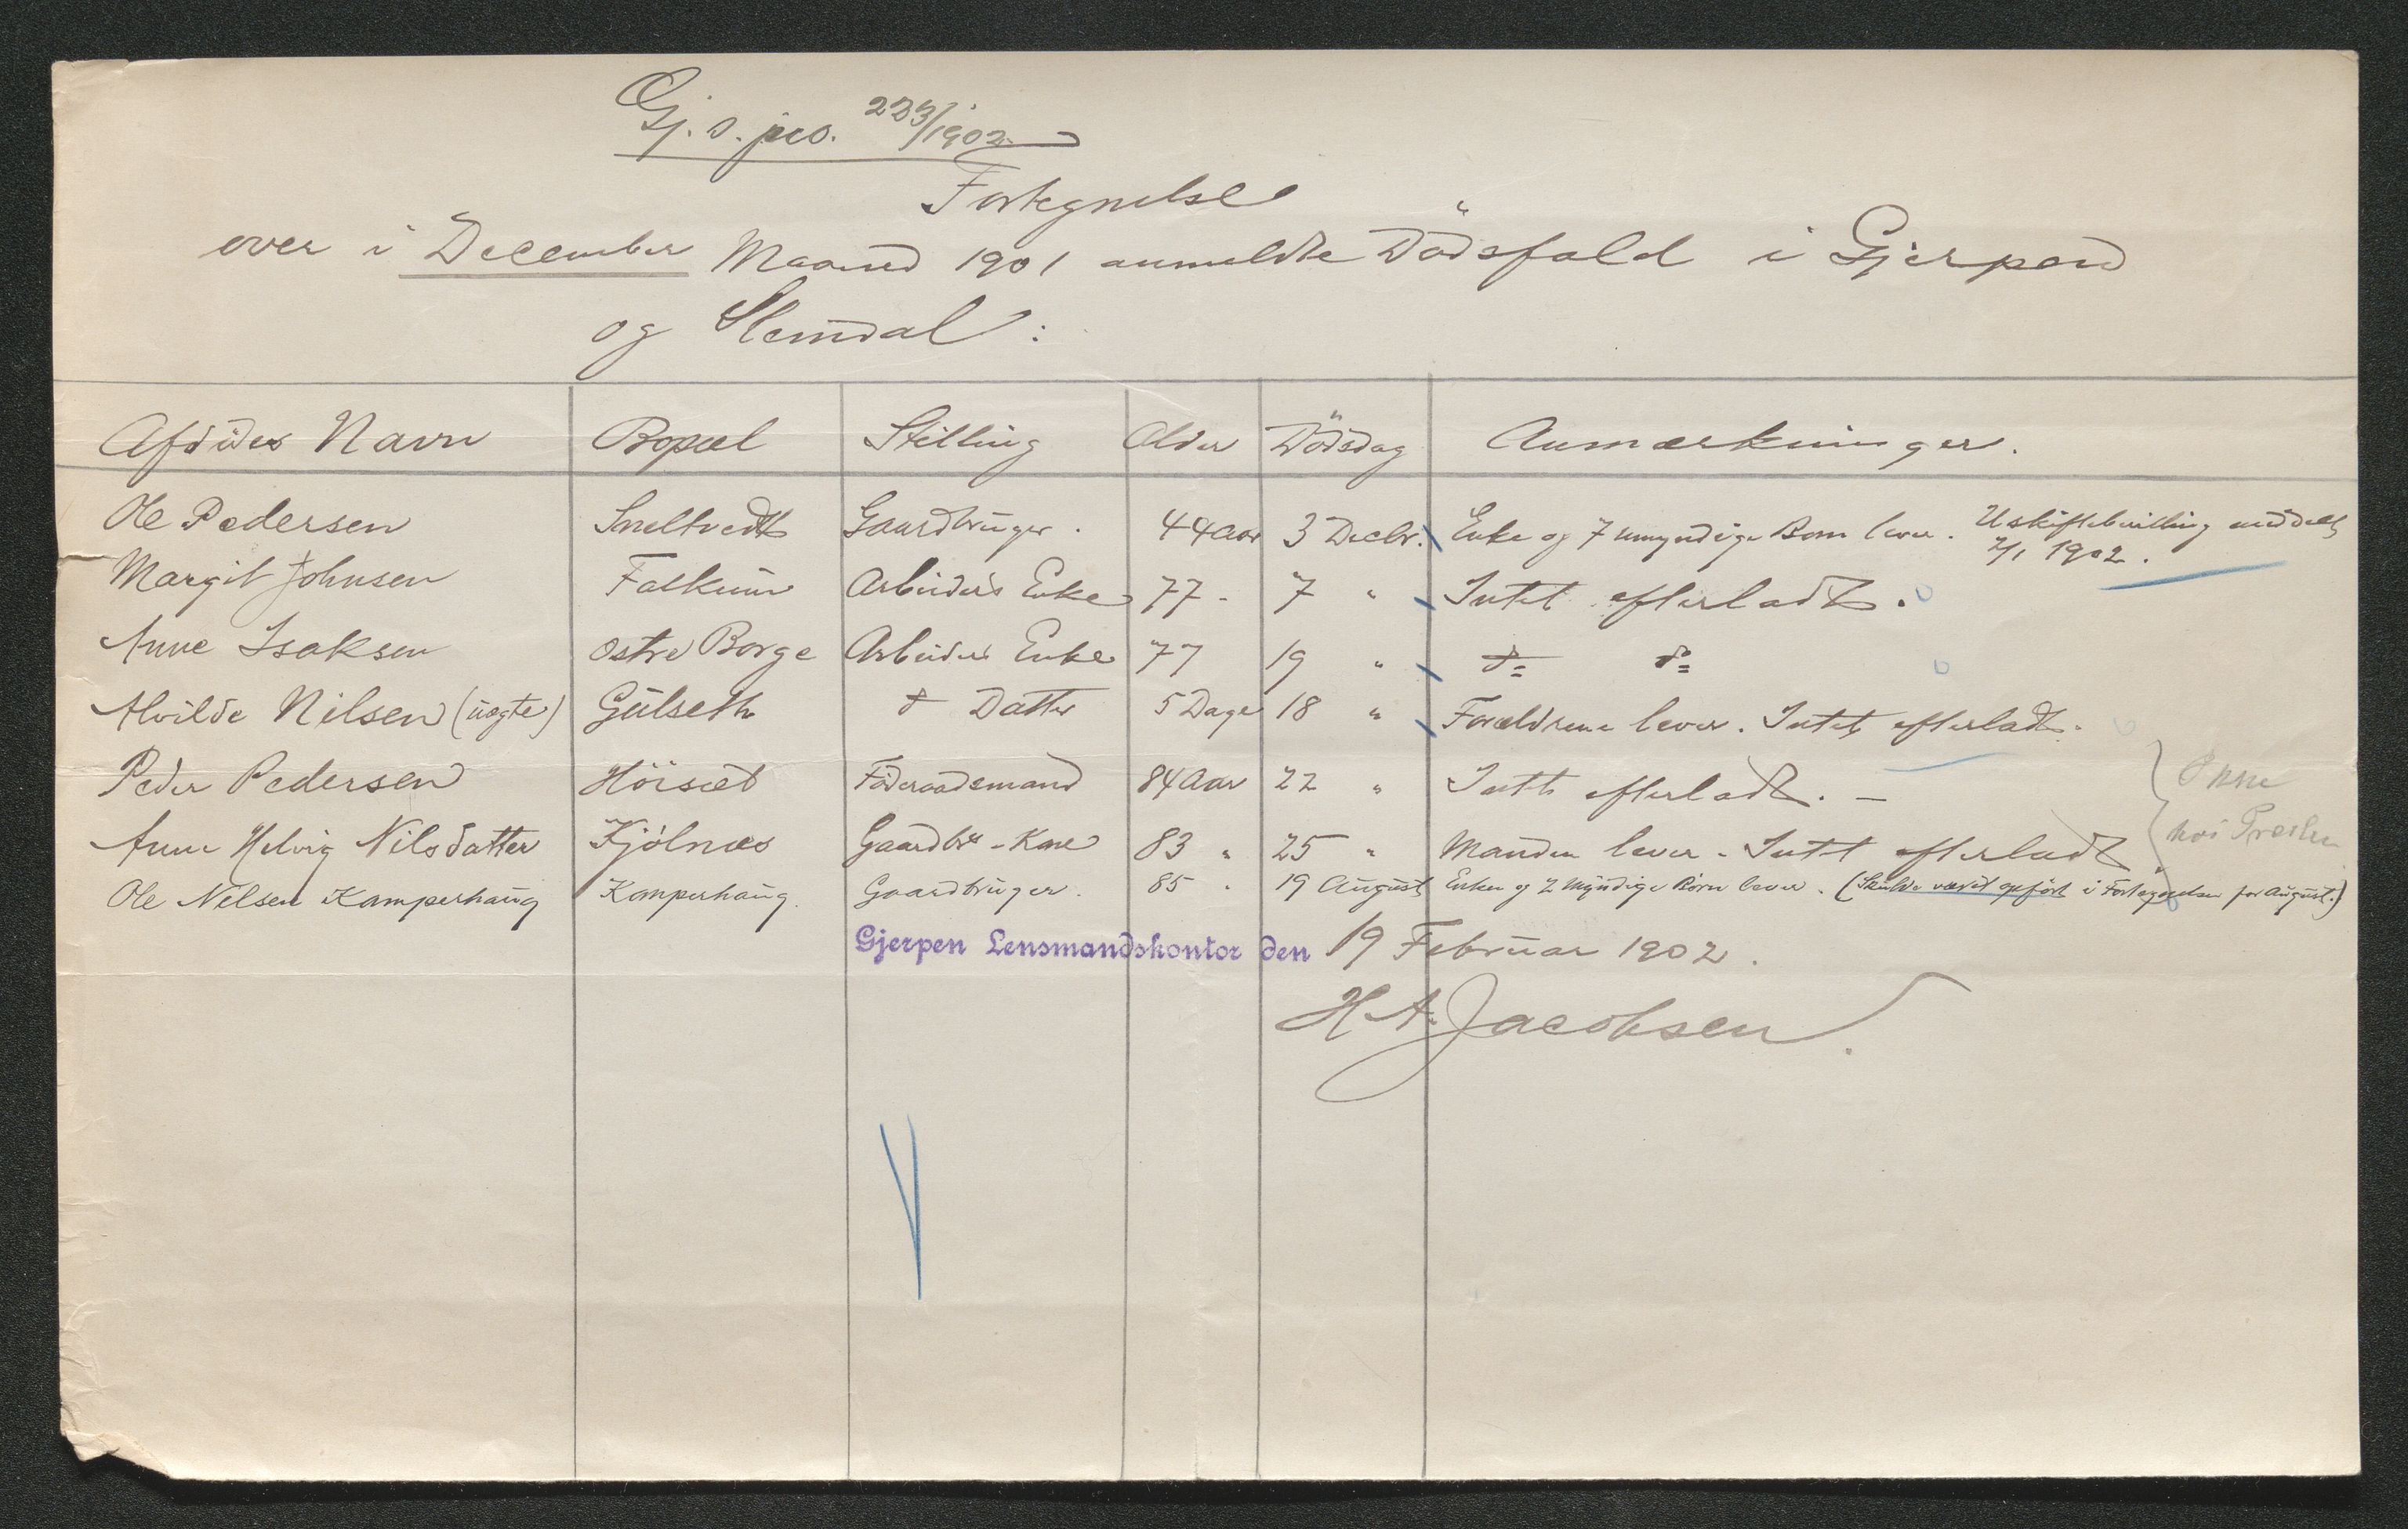 Gj. s. jro. 223/1902
Fortegnelse
over i December Maaned 1901 anmeldte Dödsfald i Gjerpen
og Slemdal:
Afdödes Navn Bopæl Stilling Alder Dödsdag Anmærkninger.
Ole Pedersen Sneltvedt Gaardbruger. 44 Aar 3 Decbr. Enke og 7 umyndige Börn lever. Uskiftebevilling meddelt
2/1 1902.
Margit Johnsen Falkum Arbeiders Enke 77 - 7 " Intet efterladt.
Anne Isaksen Østre Borge Arbeiders Enke 77 19 " do do
Alvilde Nilsen (uægte) Gulseth do Datter 5 Dage 18 " Forældrene lever. Intet efterladt.
Peder Pedersen Höisæt Föderaadsmand 84 Aar 22 " Intet efterladt. -
Anne Helvig Nilsdatter Kjölnæs Gaardbrs - Kone 83 " 25 " Manden lever - Intet efterladt
hos Presten
Ole Nilsen Kamperhaug Kamperhaug. Gaardbruger. 85 " 19 August Enken og 2 myndige Börn lever. (Skulde været opfört i Fortegnelsen for August.)
Gjerpen Lensmandskontor den 19 Februar 1902.
H A. Jacobsen.